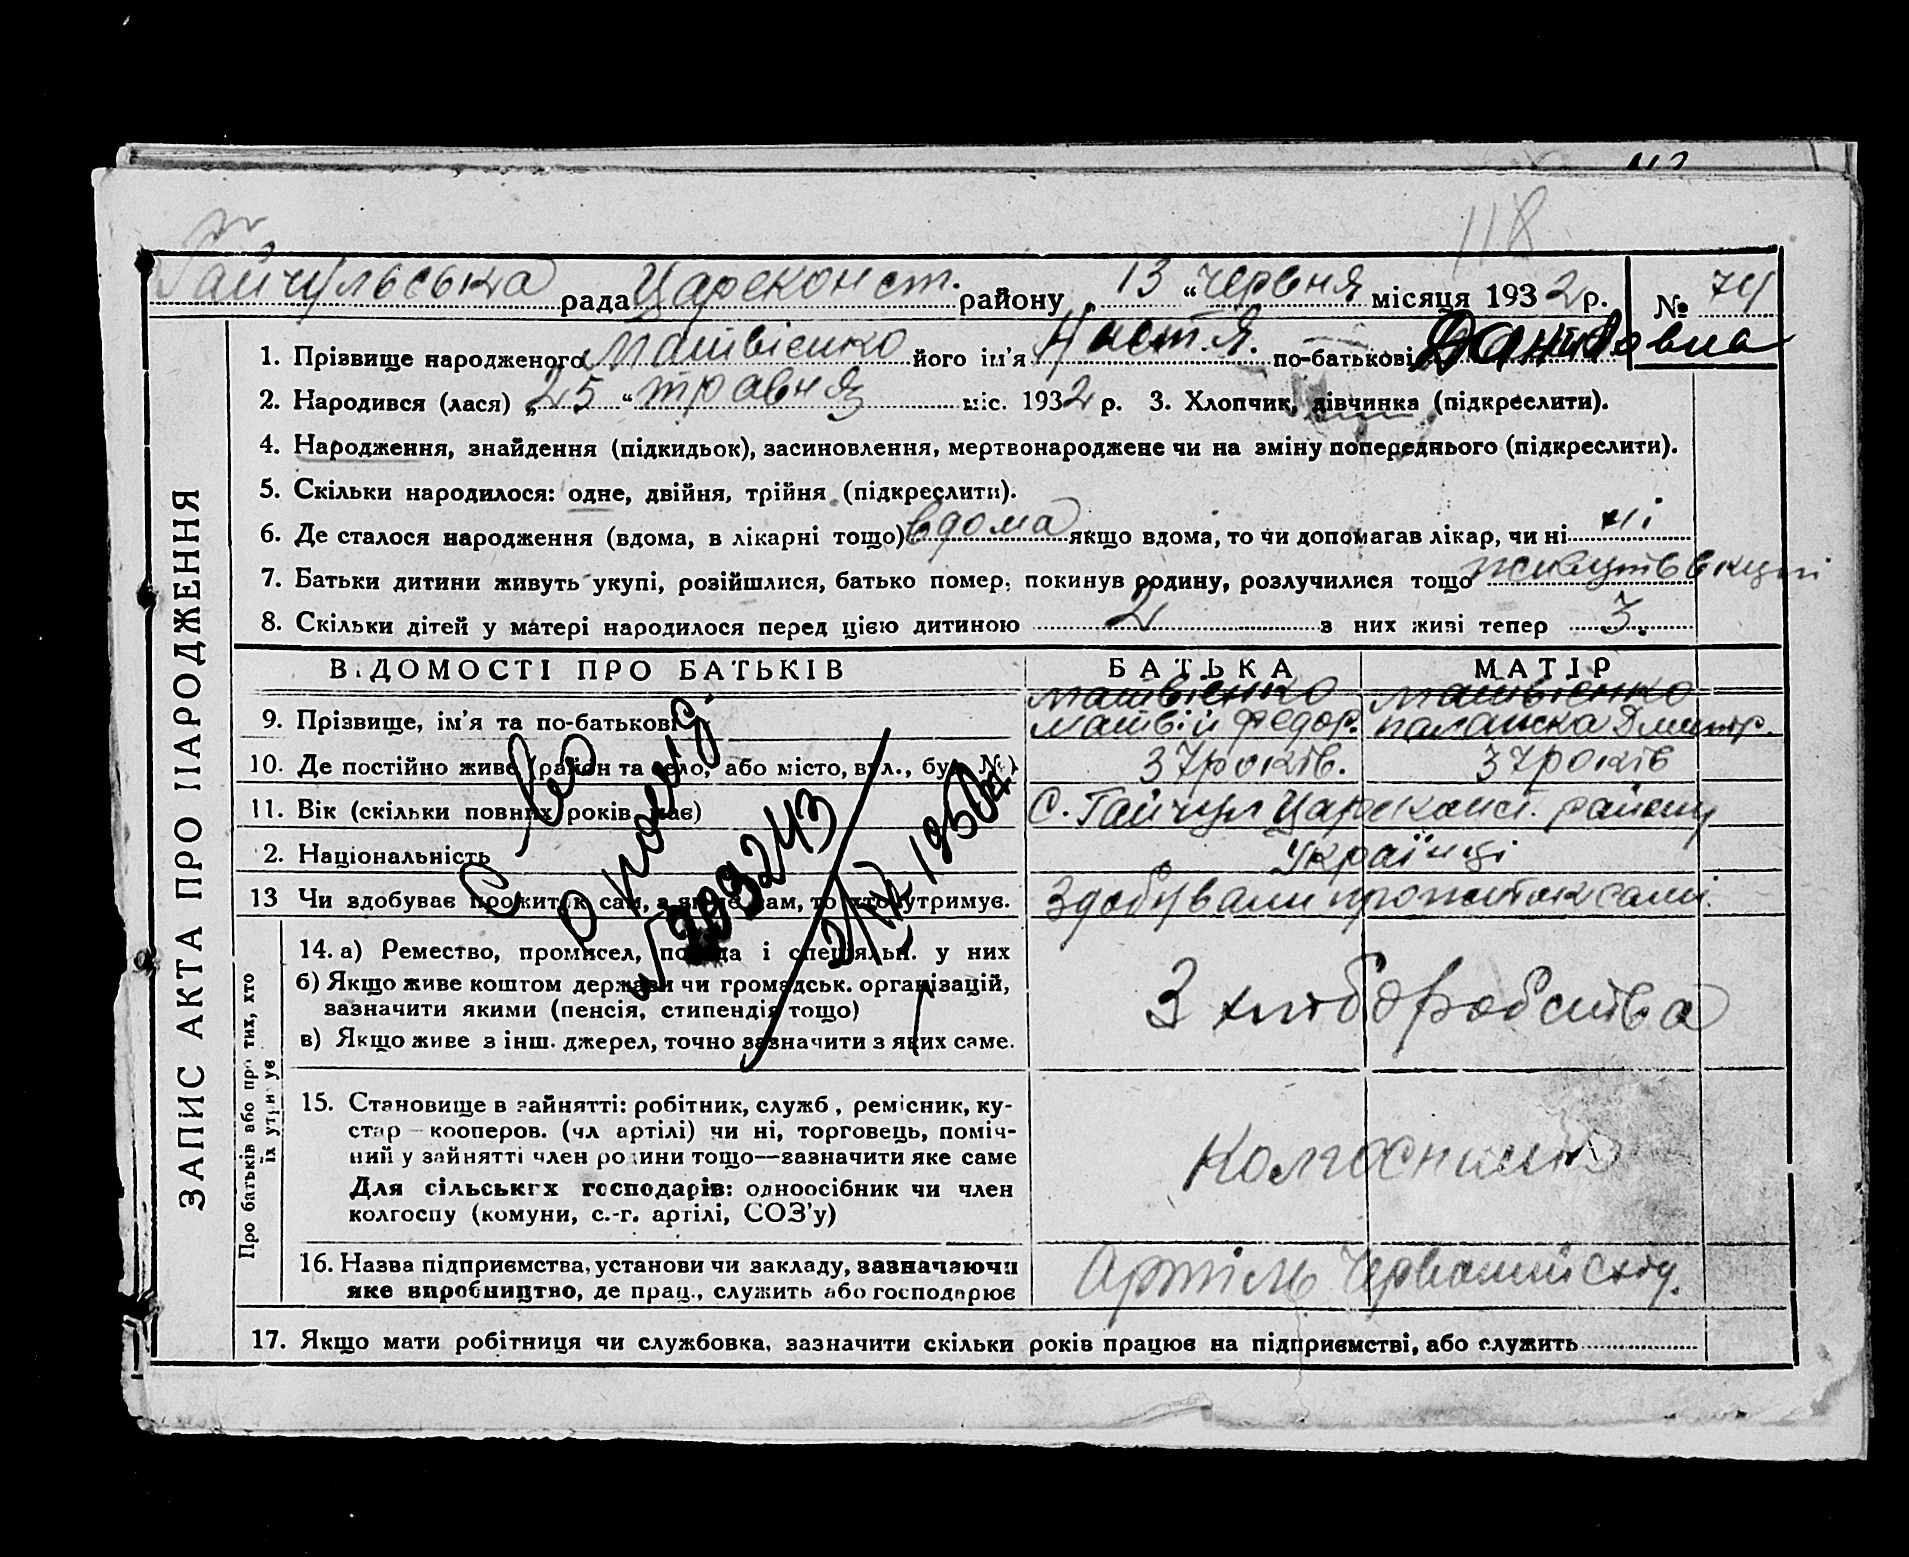 118
Гайчульська рада Цареконст. району „ 13 “ червня місяця 1932 р. № 74
1. Прізвище народженого Матвієнко його ім’я Настя. по-батькові
2. Народився (лася) „ 25 “ травня міс. 1932 р. 3. Хлопчик, дівчинка (підкреслити).
4. Народження, знайдення (підкидьок), засиновлення, мертвонароджене чи на зміну попереднього (підкреслити).
5. Скільки народилося: одне, двійня, трійня (підкреслити).
6. Де сталося народження (вдома, в лікарні тощо) вдома якщо вдома, то чи допомагав лікар, чи ні ні
7. Батьки дитини живуть укупі, розійшлися, батько помер, покинув родину, розлучилися тощо живуть вкупі
8. Скільки дітей у матері народилося перед цією дитиною 2 з них живі тепер 3.
ЗАПИС АКТА ПРО НАРОДЖЕННЯ
ВІДОМОСТІ ПРО БАТЬКІВ БАТЬКА МАТІР
Матвієнко Матвієнко
9. Прізвище, ім’я та по-батькові Матвій Федор. Палажка Дмитр.
10. Де постійно живе (район та село, або місто, вул., буд. №) 37 років. 37 років
11. Вік (скільки повних років має) С. Гайчул Цареконст. району
12. Національність Українці
13 Чи здобуває прожиток сам, а як не сам, то хто утримує. Здобували прожиток самі.
№ 209243
1950
Про батьків або про тих, хто
їх утримує
14. а) Ремество, промисел, посада і спеціяльн. у них
б) Якщо живе коштом держави чи громадськ. організацій,
зазначити якими (пенсія, стипендія тощо)
в) Якщо живе з інш. джерел, точно зазначити з яких саме.
З хліборобства
15. Становище в зайнятті: робітник, служб., ремісник, ку-
стар — кооперов. (чл артілі) чи ні, торговець, поміч-
ний у зайнятті член родини тощо—зазначити яке саме
Для сільських господарів: одноосібник чи член
колгоспу (комуни, с.-г. артілі, СОЗ’у)
Колгоспники
16. Назва підприємства, установи чи закладу, зазначаючи
яке виробництво, де прац., служить або господарює
Артіль Червоний Схід.
17. Якщо мати робітниця чи службовка, зазначити скільки років працює на підприємстві, або служить